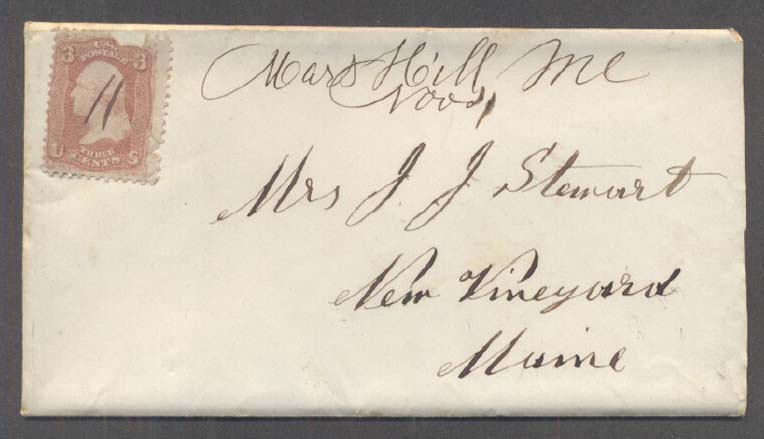 Mars Hill Me
Nov 8,
Mrs J. J. Stewart
New Vineyard
Maine
11
U.S.
POSTAGE
3 3
U S
THREE
CENTS